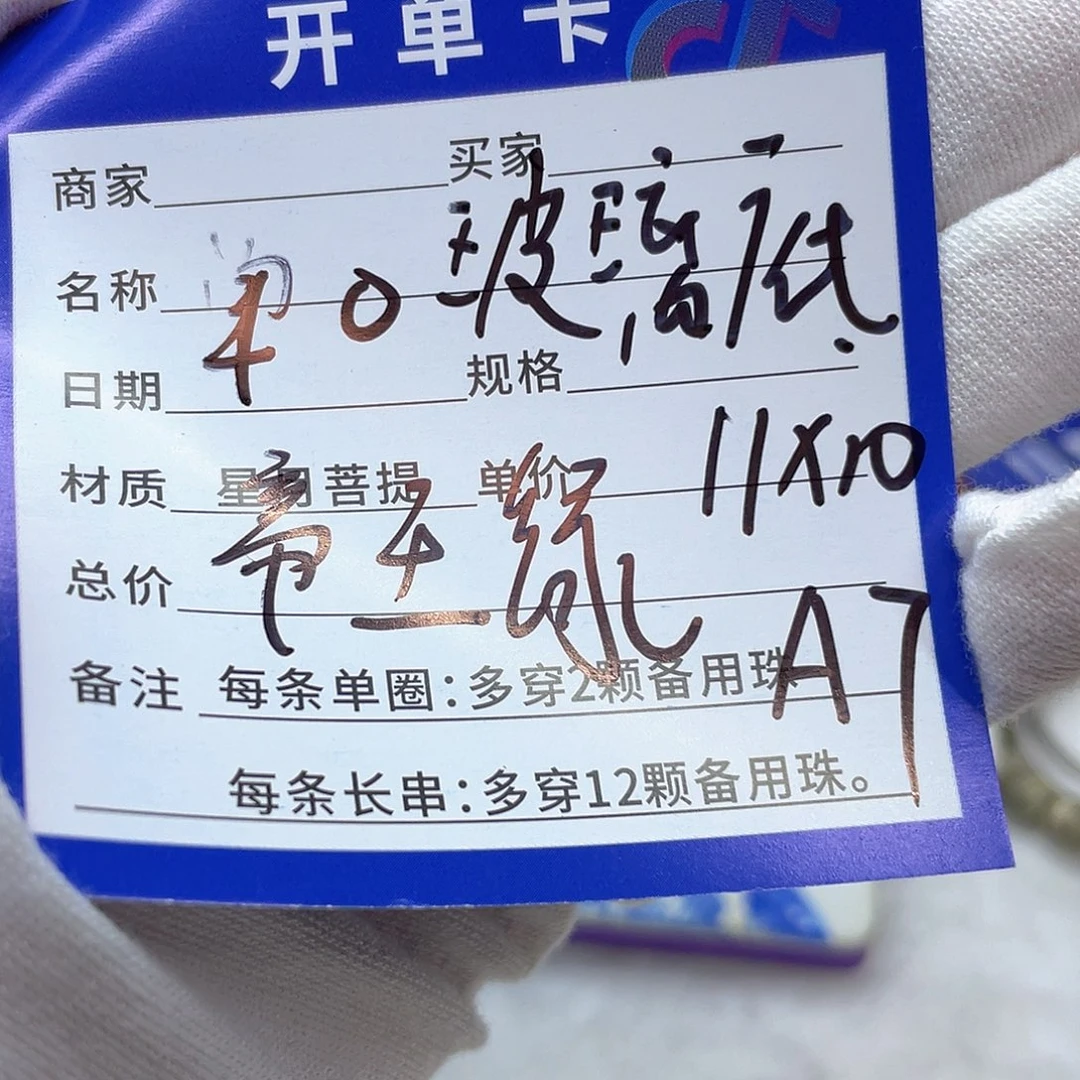 开单卡
商家 买家
名称 玻璃底
日期 规格
材质 星月菩提 单价 11X10
总价
备注 每条单圈:多穿2颗备用珠 A7
每条长串:多穿12颗备用珠。